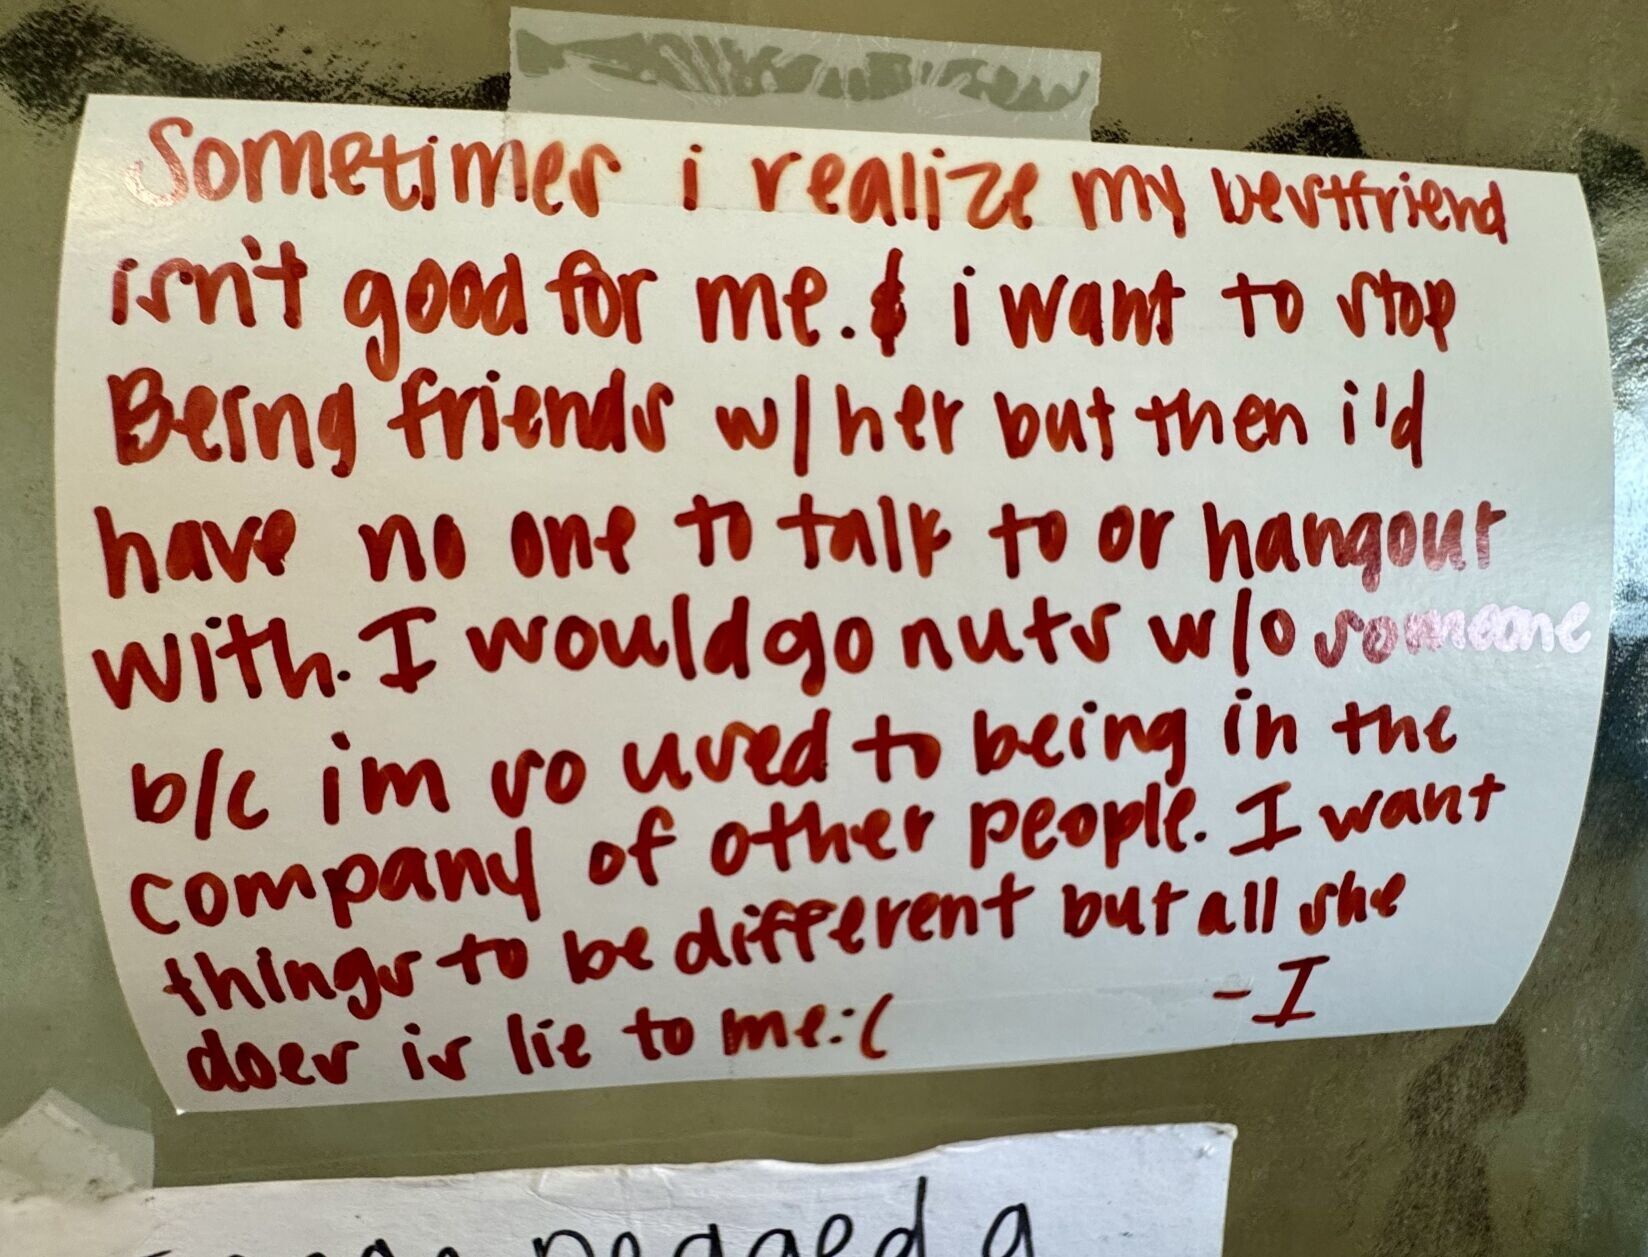 Sometimes i realize my bestfriend
isn't good for me. & i want to stop
Being friends w/her but then i'd
have no one to talk to or hangout
with. I would go nuts w/o someone
b/c im so used to being in the
company of other people. I want
things to be different but all she
does is lie to me:(
-I
pegged a